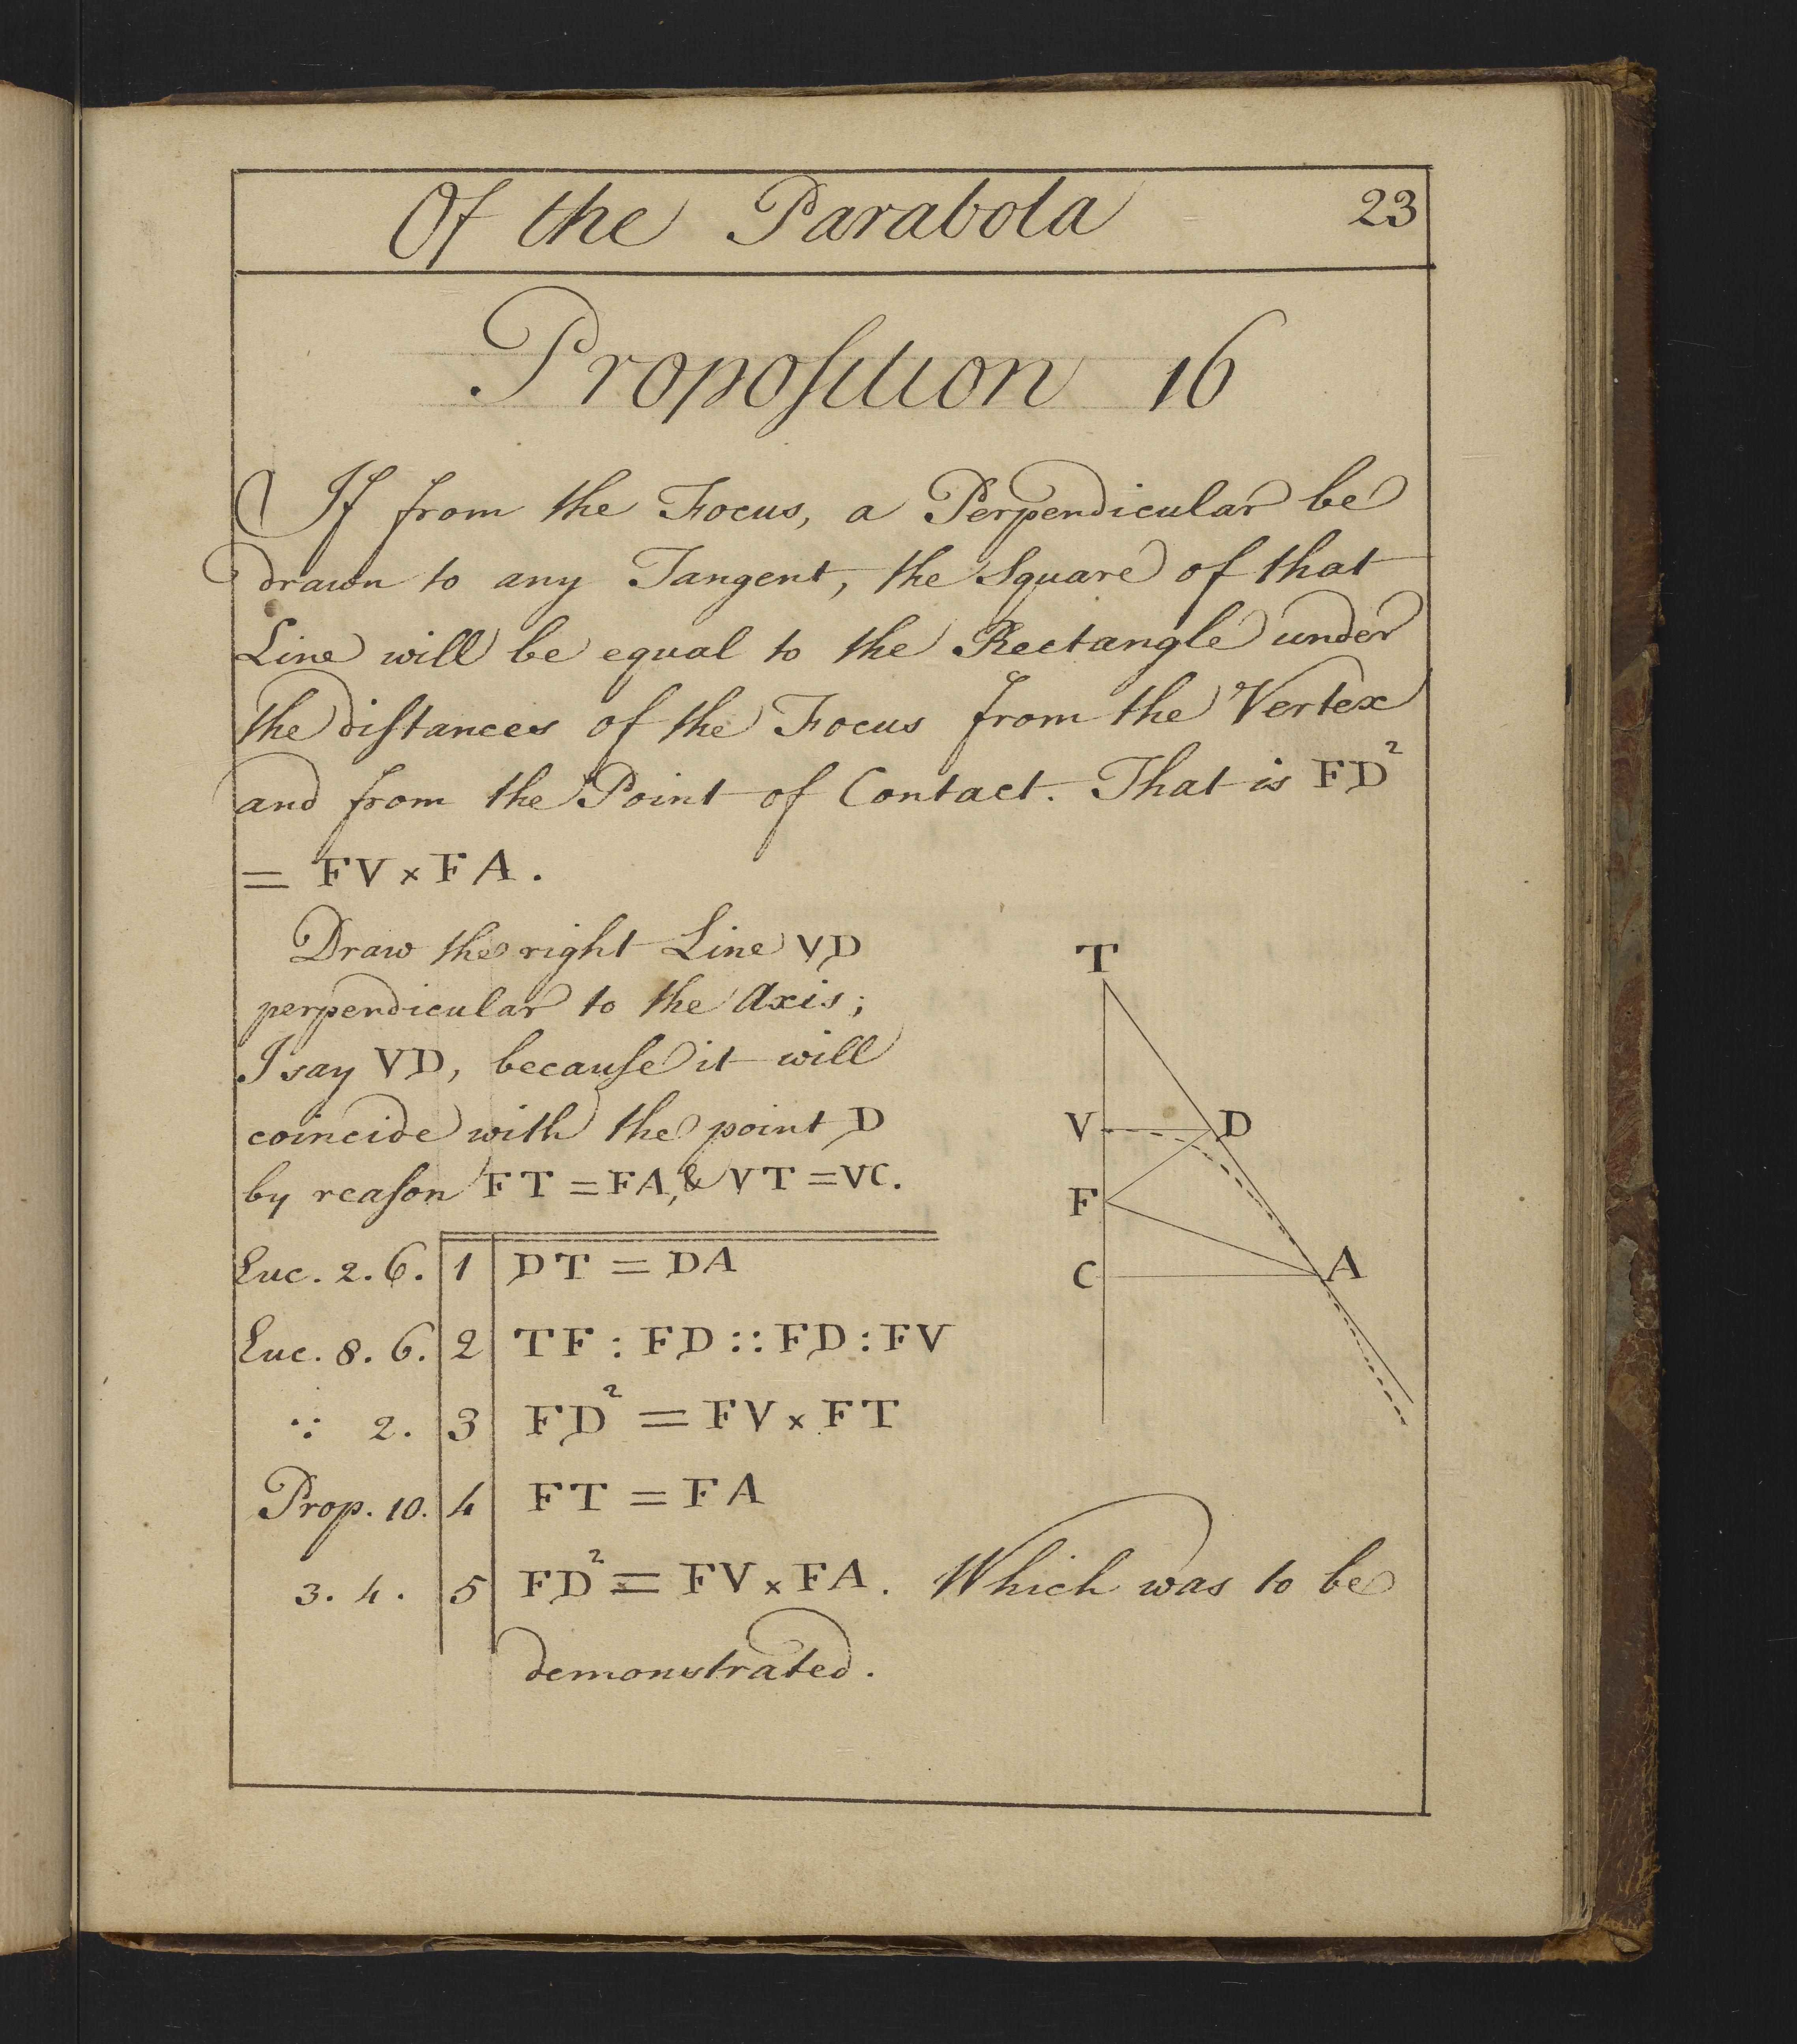 Of the Parabola 23
Propoſition 16
If from the Focus, a Perpendicular be
drawn to any Tangent, the Square of that
Line will be equal to the Rectangle under
the diſtances of the Focus from the Vertex
and from the Point of Contact. That is FD²
= FV × FA.
Draw the right Line VD
perpendicular to the Axis;
I say VD, becauſe it will
coincide with the point D
by reaſon FT = FA, & VT = VC.
Euc. 2. 6. 1 DT = DA
Euc. 8. 6. 2 TF : FD :: FD : FV
∵ 2. 3 FD² = FV × FT
Prop. 10. 4 FT = FA
3. 4. 5 FD² = FV × FA. Which was to be
demonstrated.
T
V D
F
C A